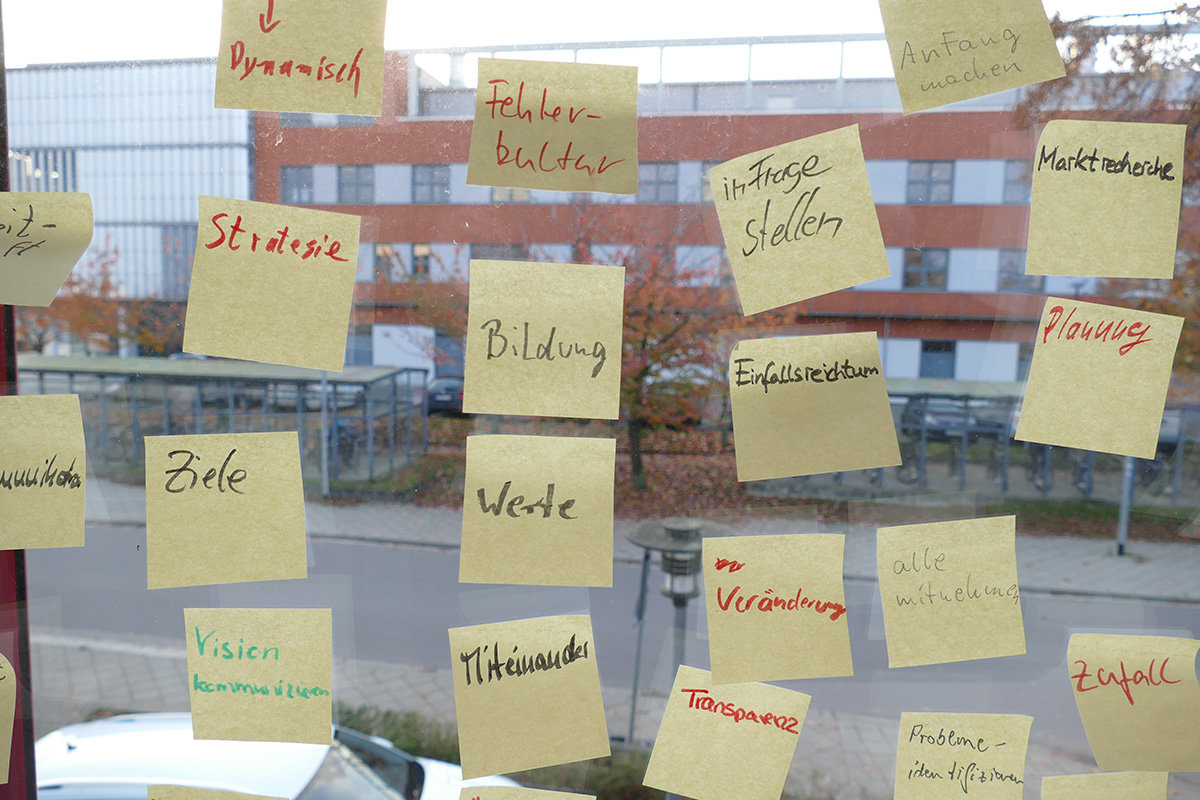 Dynamisch
Fehler-
kultur
Anfang
machen
in Frage
stellen
Marktrecherche
Strategie
Bildung
Planung
Einfallsreichtum
Ziele
Werte
Veränderung
alle
mitnehmen
Vision
kommunizieren
Miteinander
Transparenz
Zufall
Probleme-
identifizieren